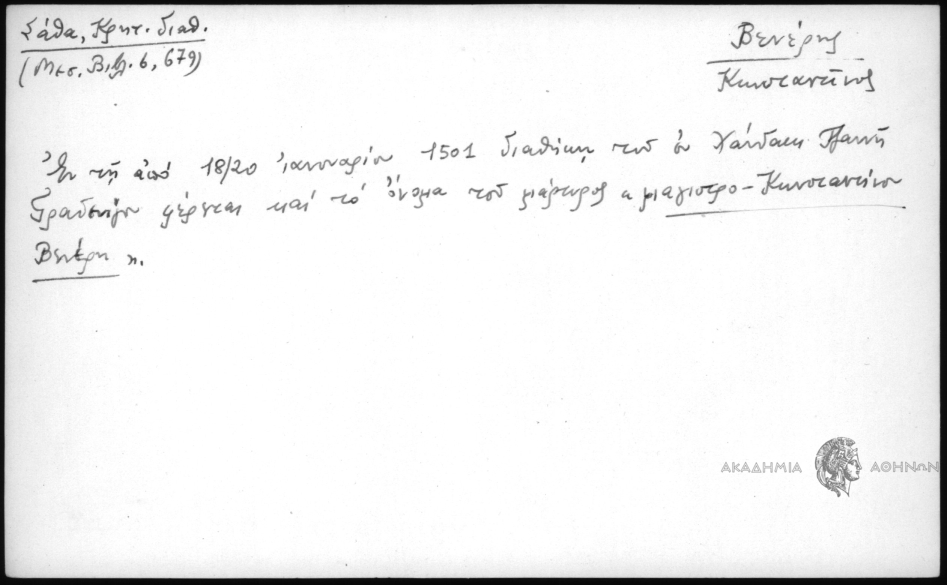 Σάθα, Κρητ. διαθ.
(Μεσ. Βιβλ. 6, 679)
Βενέρης
Κωνσταντῖνος
Ἐν τῇ ἀπό 18/20 ἰανουαρίου 1501 διαθήκῃ τοῦ ἐν Χάνδακι Τζαννῆ
Γραδενίγου φέρεται καί τό ὄνομα τοῦ μάρτυρος « μαγιστρο-Κωνσταντίνου
Βενέρη ».
ΑΚΑΔΗΜΙΑ ΑΘΗΝΩΝ